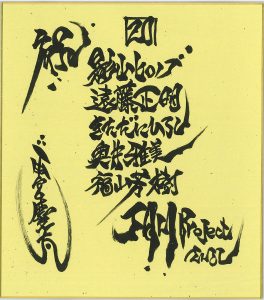 祝
20
影山ヒロノブ
遠藤正明
きただにひろし
奥井雅美
福山芳樹
JAM Project